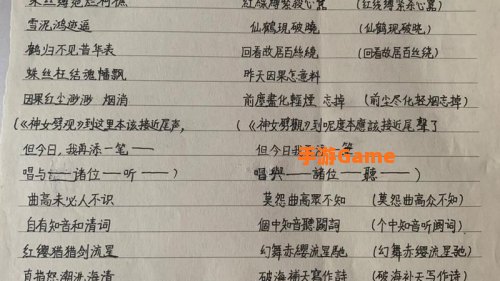 蛛丝缚宛烂柯樵 紅線縛紮殺心罠 (红线缚紮杀心罠)
雪泥鸿迹遥 仙鶴現破曉 (仙鹤现破晓)
鹤归不见昔华表 回看故居百絲繞 (回看故居百丝绕)
蛛丝枉结魂幡飘 昨天因果怎意料
因果红尘渺渺 烟消 前塵盡化輕煙 忘掉 (前尘尽化轻烟忘掉)
(《神女劈观》到这里本该接近尾声, (《神女劈觀》到呢度本應該接近尾聲了
但今日,我再添一笔—— 但今日我 筆
唱与——諸位—听——) 唱與——諸位—聽——)
曲高未必人不识 莫怨曲高眾不知 (莫怨曲高众不知)
自有知音和清词 個中知音聽闋詞 (个中知音听阕词)
红缨猎猎剑流星 幻舞赤纓流星馳 (幻舞赤缨流星驰)
直指怒潮洗海清 破海補天寫作詩 (破海补天写作诗)
手游Game